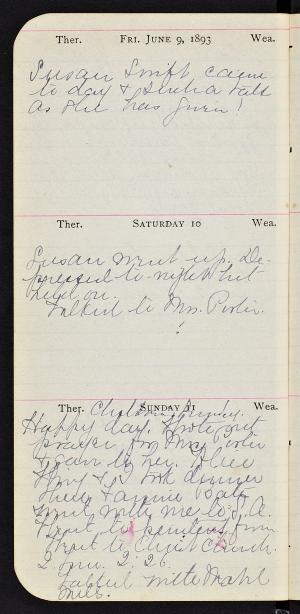 Ther. FRI. JUNE 9, 1893 Wea.
Susan Swift came
to day & such a talk
as she has given!
Ther. SATURDAY 10 Wea.
Susan went up. De-
pressed to-night but
held on.
Talked to Mrs.
Ther. SUNDAY 11 Wea.
Children's Sunday.
Happy day. Wrote out
prayer for Mrs.
& gave to her. Alice
& I took dinner
& Annie
went with me to S. A.
Went to from
to Christ Church.
2 2.26.
Talked with Mabel